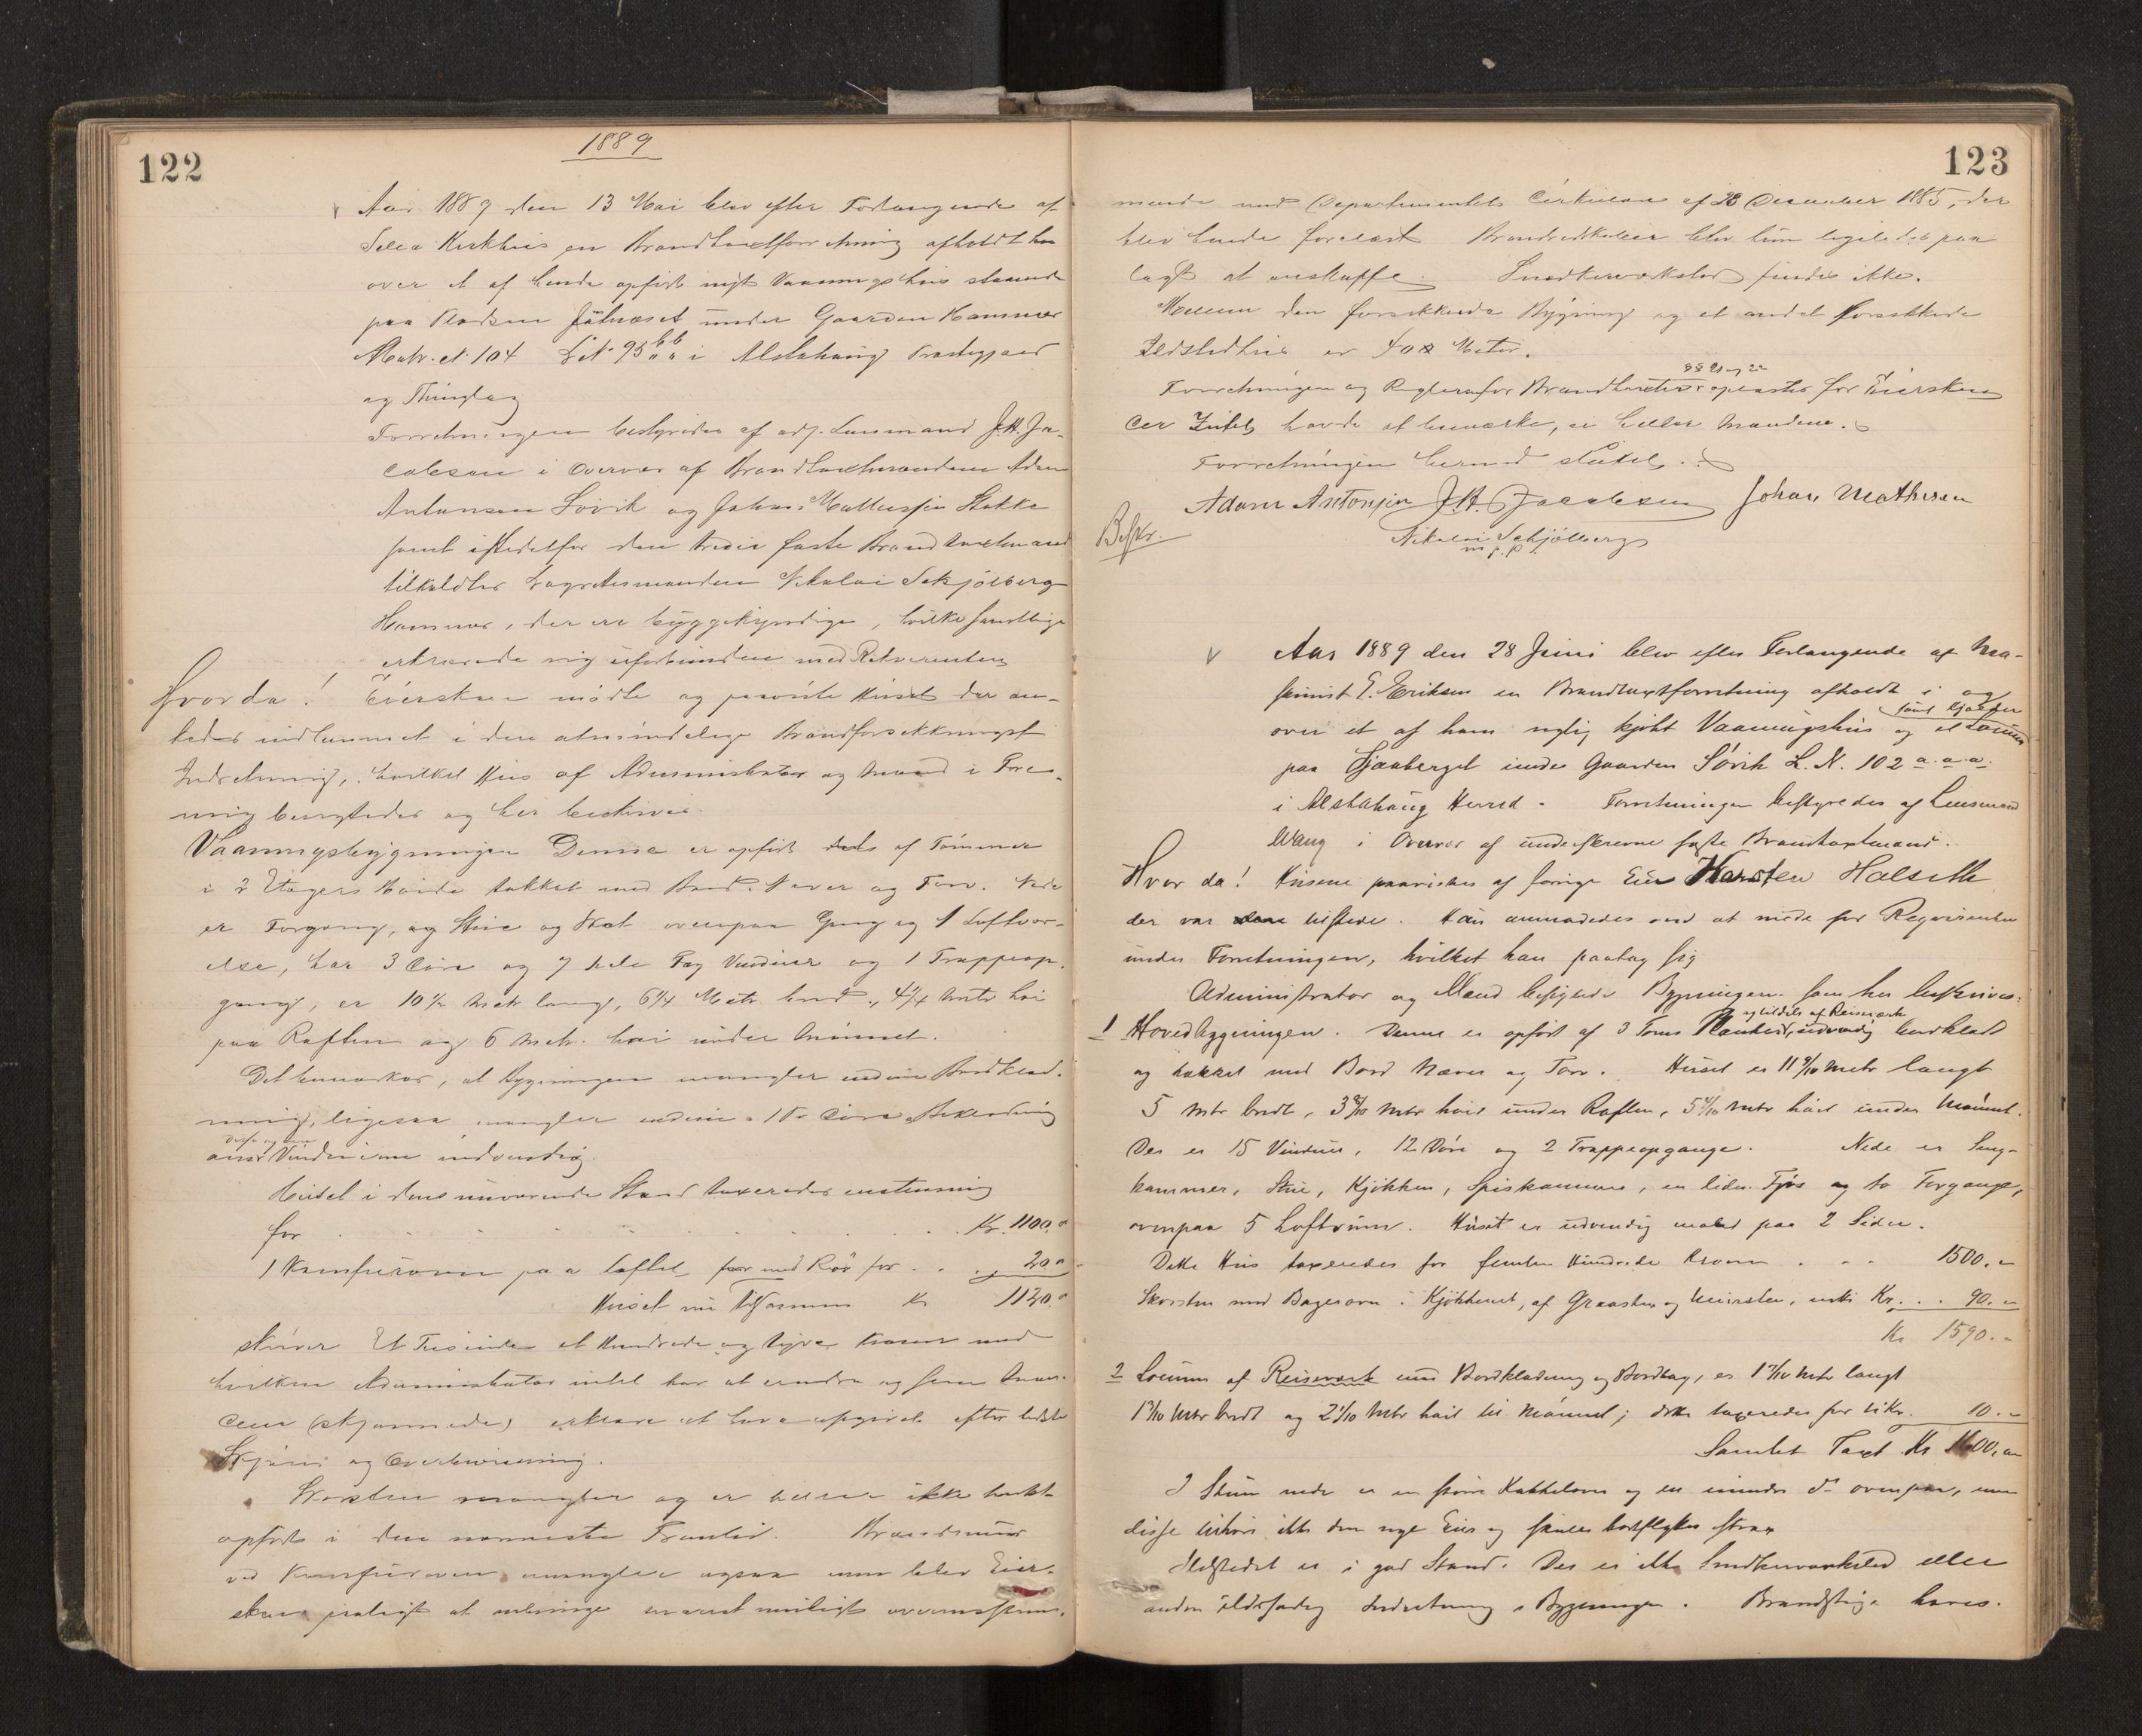 122
1889
Aar 1889 den 13 Mai blev efter Forlangende af
Kirkhus en Brandtaxtforretning afholdt
over et af hende opført nyt Vaaningshus staaende
paa Pladsen under Gaarden Hammer
Matr. N. 104 L. N. 95 i Alstahaug Præstegjæld
og Thinglag
Forretningen bestyredes af adj. Lensmand J. H. Ja-
cobsen i Overvær af Brandtaxtmændene Adam
Antonsen Søvik og Johan Mathessen Stokke
samt istedetfor den tredie faste Brandtaxtmand
tilkaldtes Lagrettesmanden Nikolai Schjølberg
Hammer, der er byggekyndige, hvilke samtlige
erklærede sig uforbundne med Rekvirenten
Hvor da! Eiersken mødte og paaviste Huset der øn-
skedes indlemmet i den almindelige Brandforsikkrings
Indretning, hvilket Hus af Administrator og Mænd i Fore-
ning besigtedes og her beskrives
Vaaningsbygningen Denne er opført dels af Tømmer
i 2 Etagers Høide takket med Bord, Never og Torv. Nede
er Forgang, og Stue og ovenpaa Gang og 1 Loftvær-
else, har 3 Døre og 7 hele Fag Vinduer og 1 Trappeop-
gang, er 10½ Metr lang, 6¼ Metr bred, 4¼ Metr høi
paa Raften og 6 Metr. høi under Mønnet.
Det bemærkes, at Bygningen mangler endnu Bordklæd-
ning, ligesaa mangler endnu 1 Dør Beklædning
Vinduerne indvendig.
Huset i dens nuværende Stand taxeredes enstemmig
for . . . . . . . . . Kr. 1100.
1 Komfurovn paa Loftet med Rør for . . 20
Huset Kr 1120.
skriver Et Tusinde et Hundrede og tyve Kroner med
hvilken Administrator intet har at erindre og som Mæn-
dene (skjønnede) erklære at have afgivet efter bedste
Skjøn og Overbevisning.
Skorsten mangler og er heller ikke
opført i den nærmeste Fremtid. Brandmur
ved Komfurovnen mangler ogsaa men blev Eier-
sken paalagt at anbringe snarest muligt overensstem-
123
mende med Departementets Cirkulær af 28 December 1885, der
blev hende forelæst Brandredskaber blev hun ligeledes paa
lagt at anskaffe. Snedkerværksted findes ikke.
Mellem den forsikkrede Bygning og et andet forsikkrede
Ildstedhus er 40 Meter.
§§ 21 og 22
Forretningen og Reglerne for Brandtaxter oplæstes for Eiersken
der Intet havde at bemærke, ei heller Mændene.
Forretningen hermed sluttet.
Adam Antonsen J.H. Jacobsen Johan Mathesen
Nikolai Schjølberg
m. p. P.
Beskr.
Aar 1889 den 28 Juni blev efter Forlangende af Ma-
skinist E. Eriksen en Brandtaxtforretning afholdt i og
samt Kjælder
over et af ham nylig kjøbt Vaaningshus og et Locum
paa under Gaarden Søvik L. N. 102 a. a. a.
i Alstahaug Herred. Forretningen bestyredes af Lensmand
Wang i Overvær af underskrevne faste Brandtaxtmænd.
Hvor da! Husene paavistes af forrige Eier Karsten Halseth
der var tilstede. Han anmodedes om at møde for Reqvirenten
under Forretningen, hvilket han paatog sig
Administrator og Mænd besigtede Bygningen som her beskrives:
og tildels af Reisværk
1 Hovedbygningen. Denne er opført af 3 Toms Planker, udvendig bordklædt
og takket med Bord Næver og Torv. Huset er 11 9/10 Metr langt
5 Metr bredt, 3 8/10 Metr høit under Raften, 5 4/10 Metr høit under Mønnet.
Der er 15 Vinduer, 12 Døre og 2 Trappeopgange. Nede er Seng-
kammer, Stue, Kjøkken, Spiskammer, en liden Fjøs og to Forgange,
ovenpaa 5 Loftsrum. Huset er udvendig malet paa 2 Sider.
Dette Hus taxeredes for femten Hundrede Kroner . . . 1500.
Skorsten med Bagerovn i Kjøkkenet, af Graasten og Mursten, Kr. . . 90.
Kr 1590.
2 Locum af Reisværk med Bordklædning og Bordtag, er 1 7/10 Metr langt
1 3/10 Metr bredt og 2 1/10 Metr høit til Mønnet; dette taxeredes for ti Kr. 10.
Samlet Taxt Kr 1600.
I Stuen nede er en større Kakkelovn og en mindre do ovenpaa, men
disse tilhøre ikke den nye Eier og skulle bortflyttes strax
Ildstedet er i god Stand. Der er ikke Snedkerværksted eller
anden ildsfarlig Indretning i Bygningen. Brandstige haves.